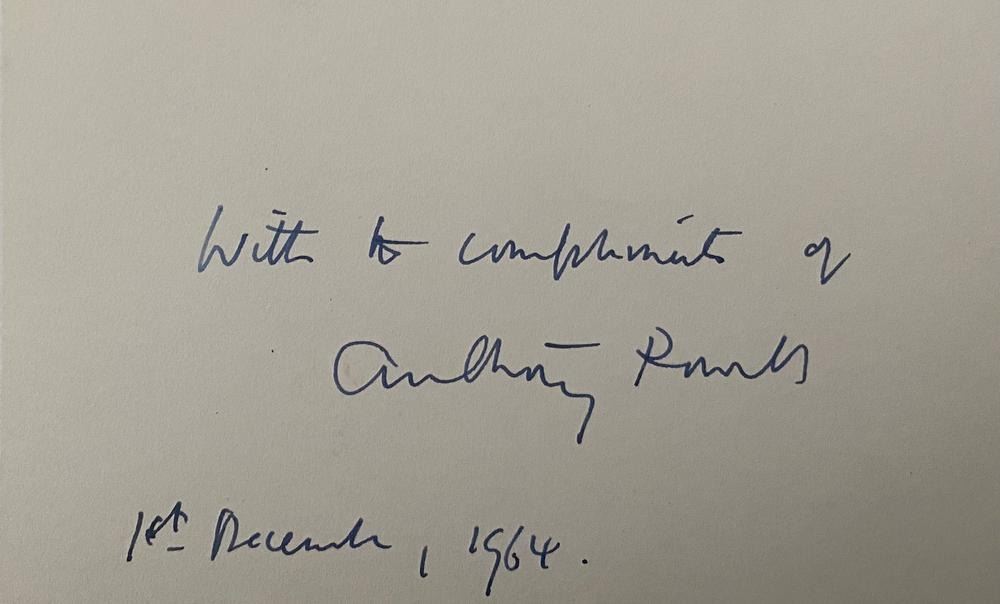 With the compliments of
Anthony Powell
1st December, 1964.